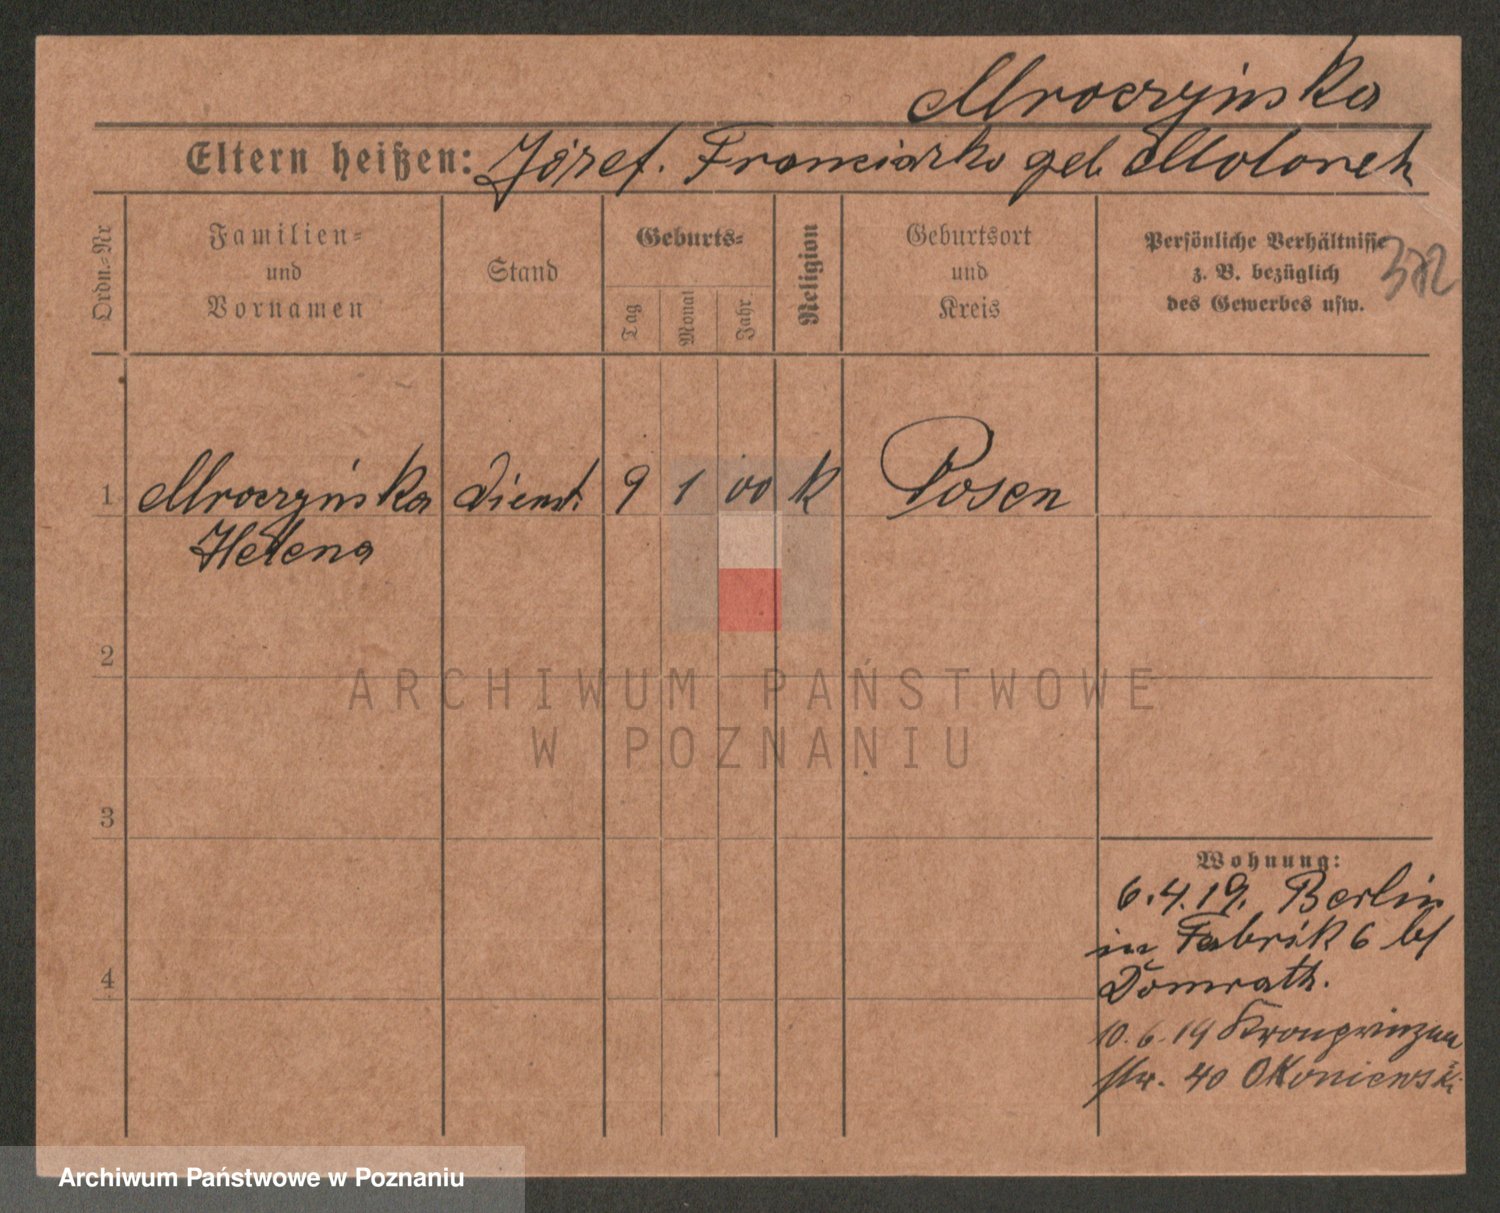 Mroczyńska
Eltern heißen: Józef. Franciszka geb.
Ordn.-Nr
Familien-
und
Vornamen
Stand
Geburts-
Tag
Monat
Jahr
Religion
Geburtsort
und
Kreis
Persönliche Verhältnisse
z. B. bezüglich
des Gewerbes usw.
1 Mroczyńska Dienst. 9 1 00 K Posen
Helena
2
ARCHIWUM PAŃSTWOWE
W POZNANIU
3
Wohnung:
6.4.19. Berlin
in Fabrik 6 bf
Domrath.
4
10.6.19 Kronprinzen
str. 40 Okoniewski
Archiwum Państwowe w Poznaniu